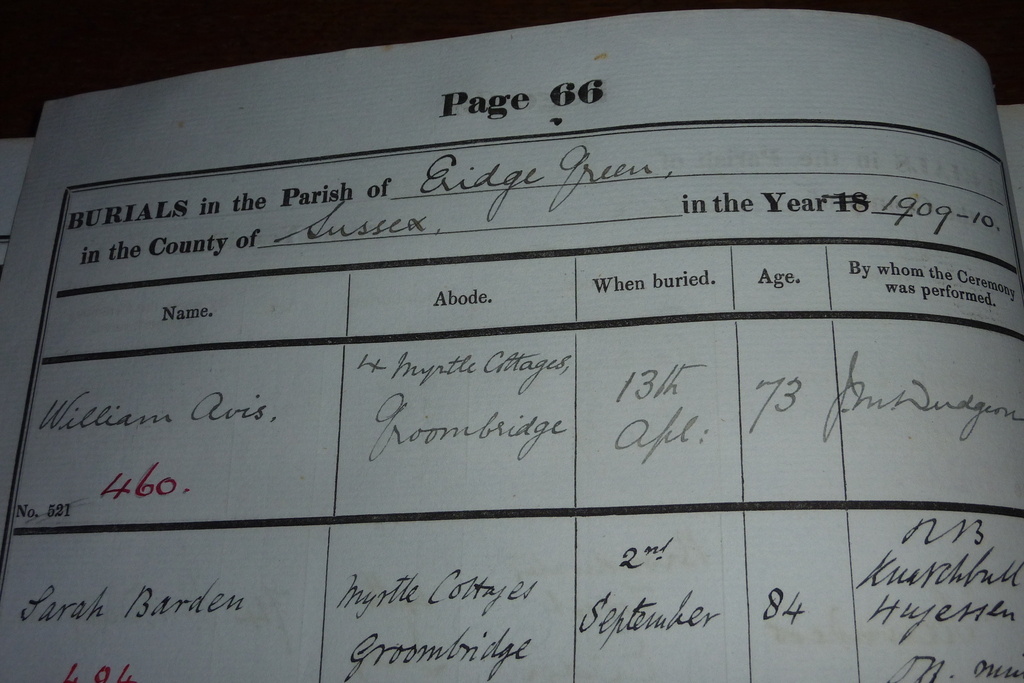 Page 66
BURIALS in the Parish of Eridge Green,
in the County of Sussex, in the Year 18 1909-10.
Name. Abode. When buried. Age. By whom the Ceremony
was performed.
William Avis, 4 Myrtle Cottages, 13th 73
Groombridge Apl:
460.
No. 521
Sarah Barden Myrtle Cottages 2nd 84 Knatchbull
Groombridge September Hugessen